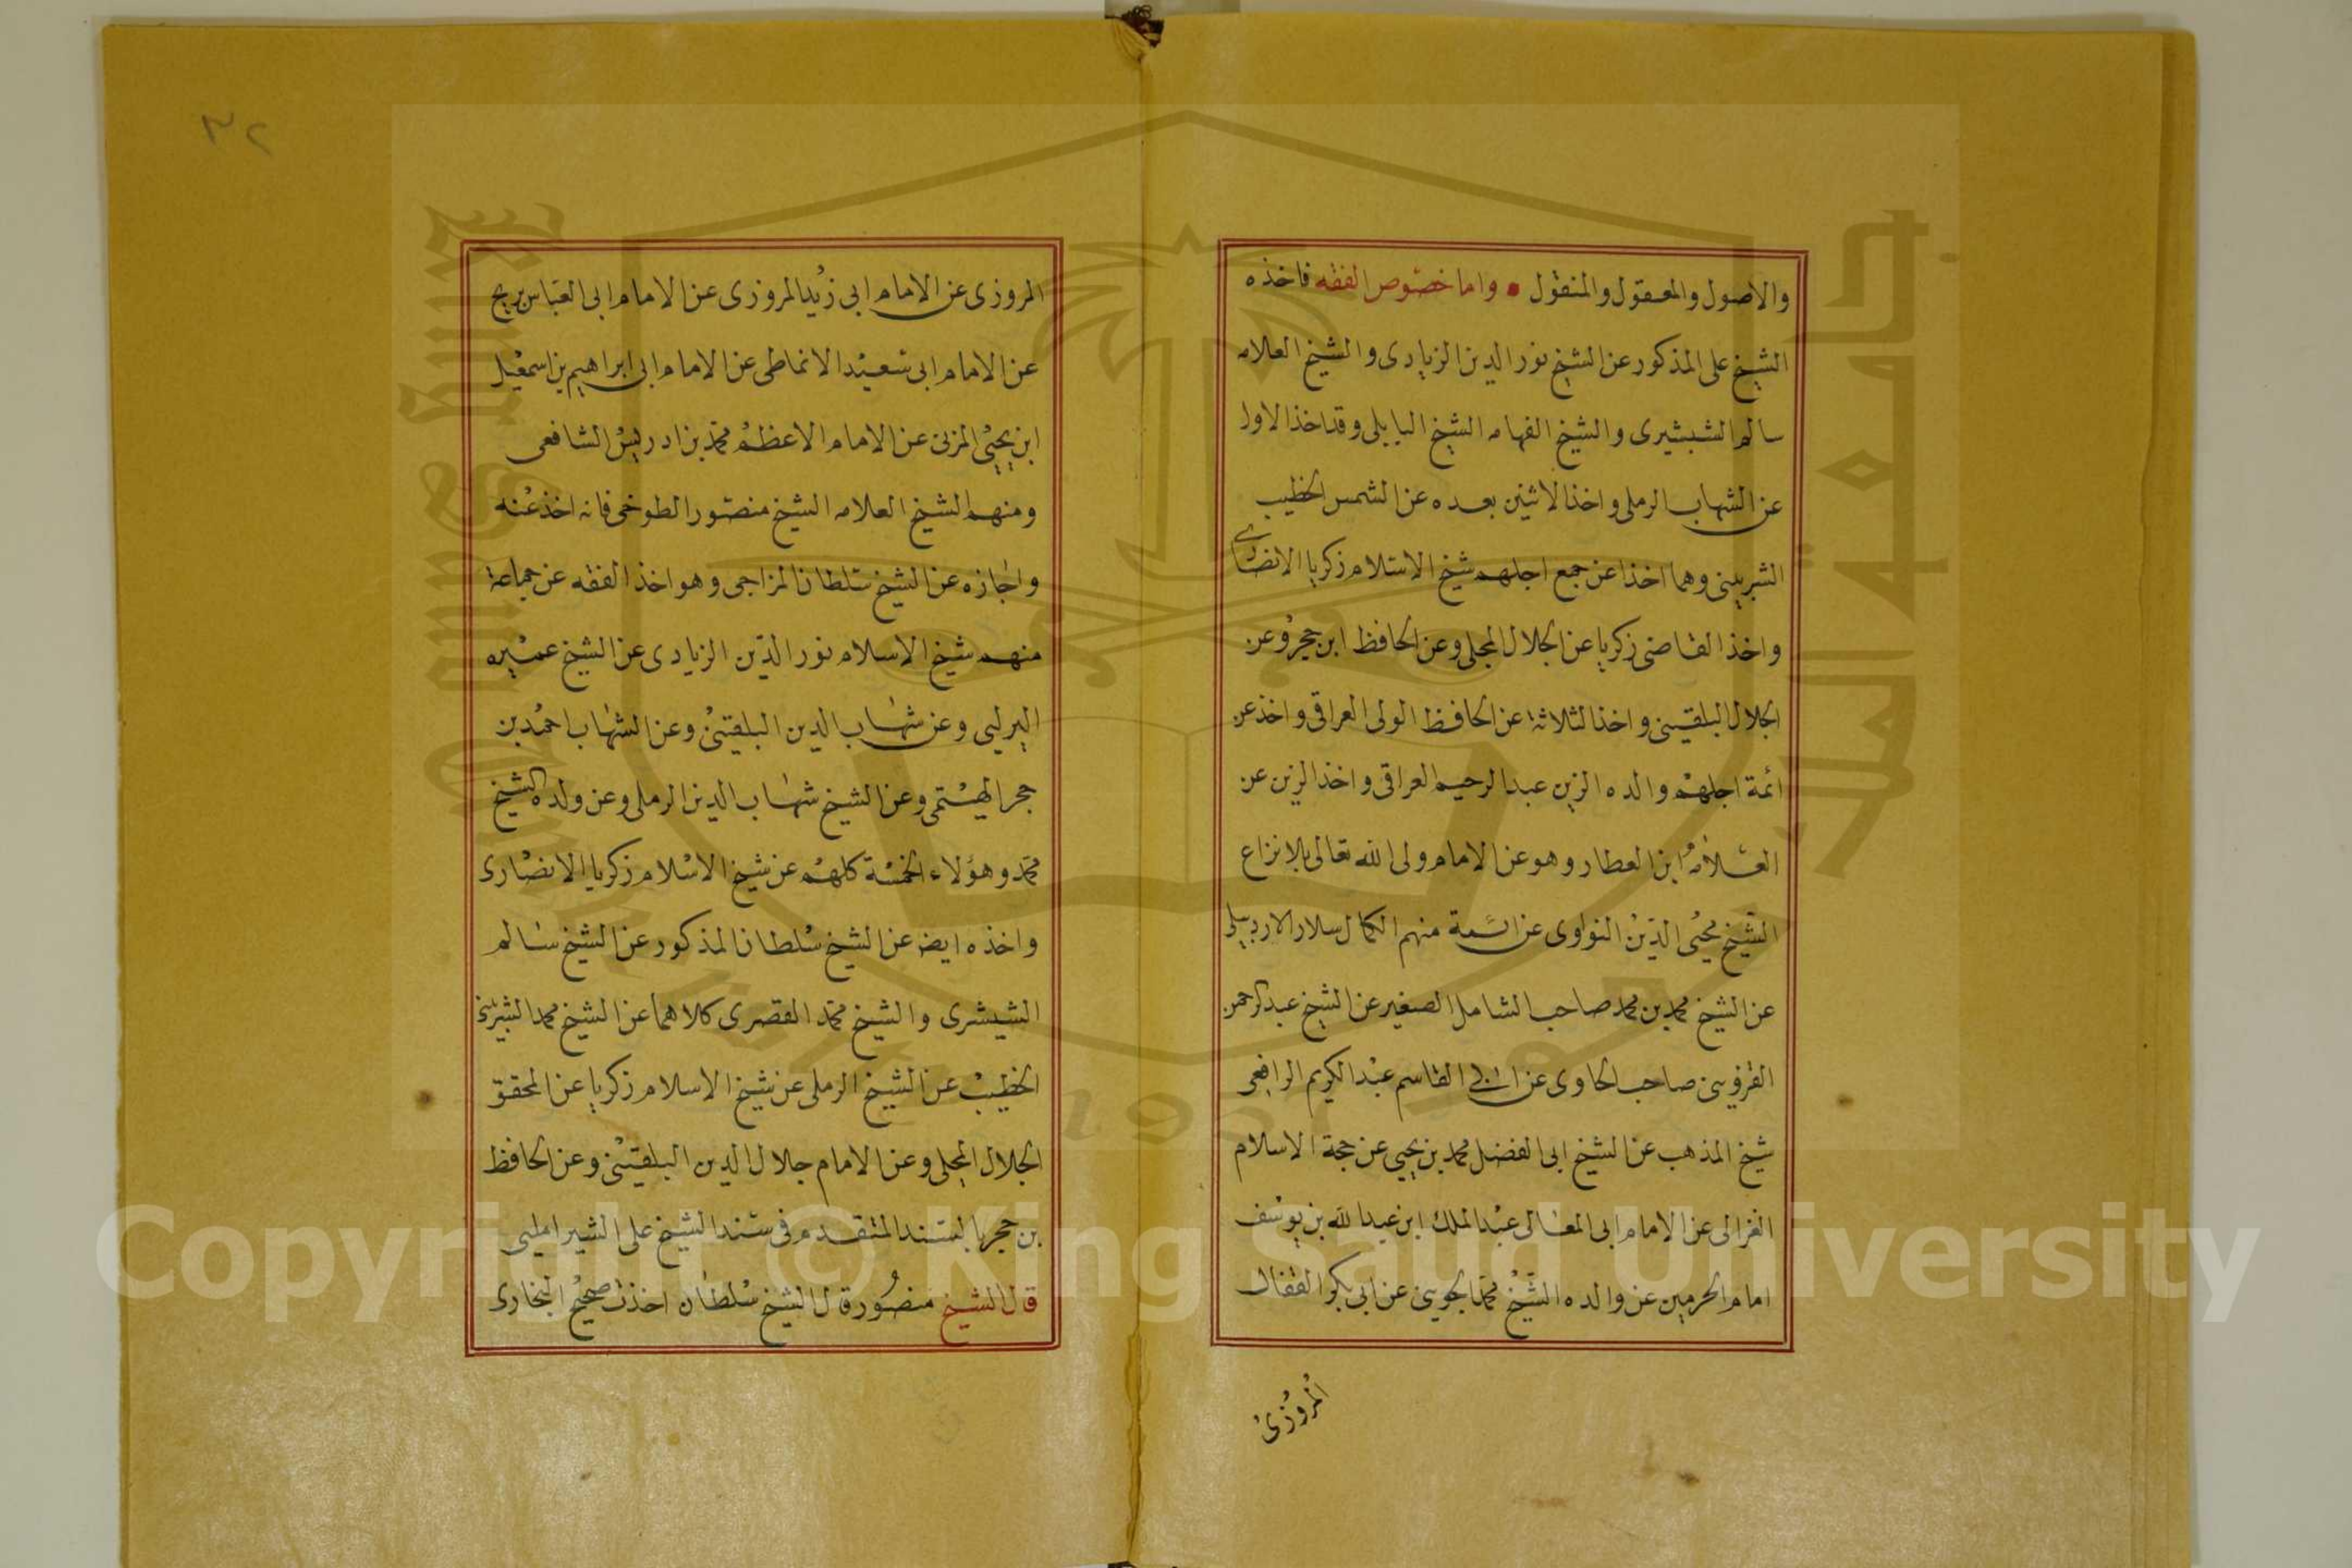 والاصول والمعقول والمنقول • واما خصوص الفقه فاخذه
الشيخ على المذكور عن الشيخ نور الدين الزيادى والشيخ العلامه
سالم الشبشيرى والشيخ الفهامه الشيخ البابلى وقد اخذ الاول
عن الشهاب الرملى واخذ الاثنين بعده عن الشمس الخطيب
الشربينى وهما اخذا عن جمع اجلهم شيخ الاسلام زكريا الانصارى
واخذ القاضى زكريا عن الجلال المحلى وعن الحافظ ابن حجر وعن
الجلال البلقينى واخذ الثلاثة عن الحافظ الولى العراقى واخذ عن
ائمة اجلهم والده الزين عبد الرحيم العراقى واخذ الزين عن
العلامه ابن العطار وهو عن الامام ولى الله تعالى بلا نزاع
الشيخ محيى الدين النواوى عن ائمة منهم الكمال سلار الاردبيلى
عن الشيخ محمد بن محمد صاحب الشامل الصغير عن الشيخ عبد الرحمن
القزوينى صاحب الحاوى عن ابى القاسم عبد الكريم الرافعى
شيخ المذهب عن الشيخ ابى الفضل محمد بن يحيى عن حجة الاسلام
الغزالى عن الامام ابى المعالى عبد الملك ابن عبد الله بن يوسف
امام الحرمين عن والده الشيخ محمد الجوينى عن ابى بكر القفال
المروزى
٣٢
المروزى عن الامام ابى زيد المروزى عن الامام ابى العباس بريج
عن الامام ابى سعيد الانماطى عن الامام ابى ابراهيم بن اسمعيل
ابن يحيى المزنى عن الامام الاعظم محمد بن ادريس الشافعى
ومنهم الشيخ العلامه الشيخ منصور الطوخى فانه اخذ عنه
واجازه عن الشيخ سلطان المزاحى وهو اخذ الفقه عن جماعة
منهم شيخ الاسلام نور الدين الزيادى عن الشيخ عميره
البرلسى وعن شهاب الدين البلقينى وعن الشهاب احمد بن
حجر الهيتمى وعن الشيخ شهاب الدين الرملى وعن ولده الشيخ
محمد وهؤلاء الخمسة كلهم عن شيخ الاسلام زكريا الانصارى
واخذه ايضا عن الشيخ سلطان المذكور عن الشيخ سالم
الشبشرى والشيخ محمد القصرى كلاهما عن الشيخ محمد الشربينى
الخطيب عن الشيخ الرملى عن شيخ الاسلام زكريا عن المحقق
الجلال المحلى وعن الامام جلال الدين البلقينى وعن الحافظ
بن حجر بالسند المتقدم فى سند الشيخ على الشبراملسى
قال الشيخ منصور قال الشيخ سلطان اخذت صحيح البخارى
Copyright © King Saud University